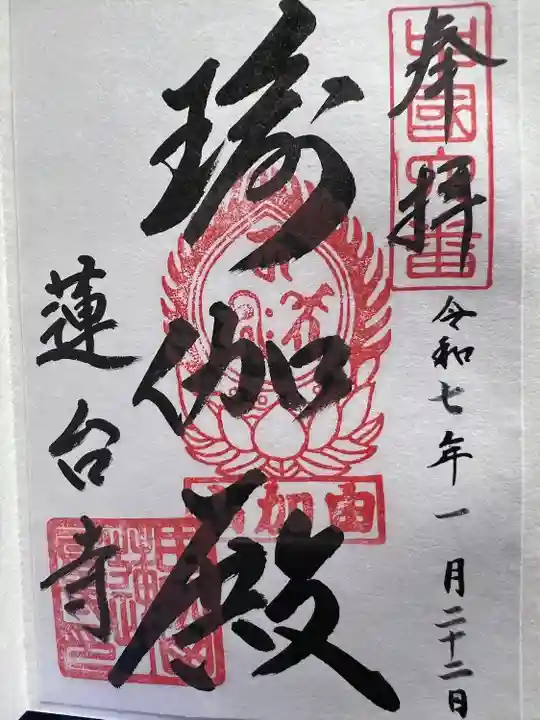 奉拝
令和七年一月二十二日
瑜伽殿
由加山
蓮台寺